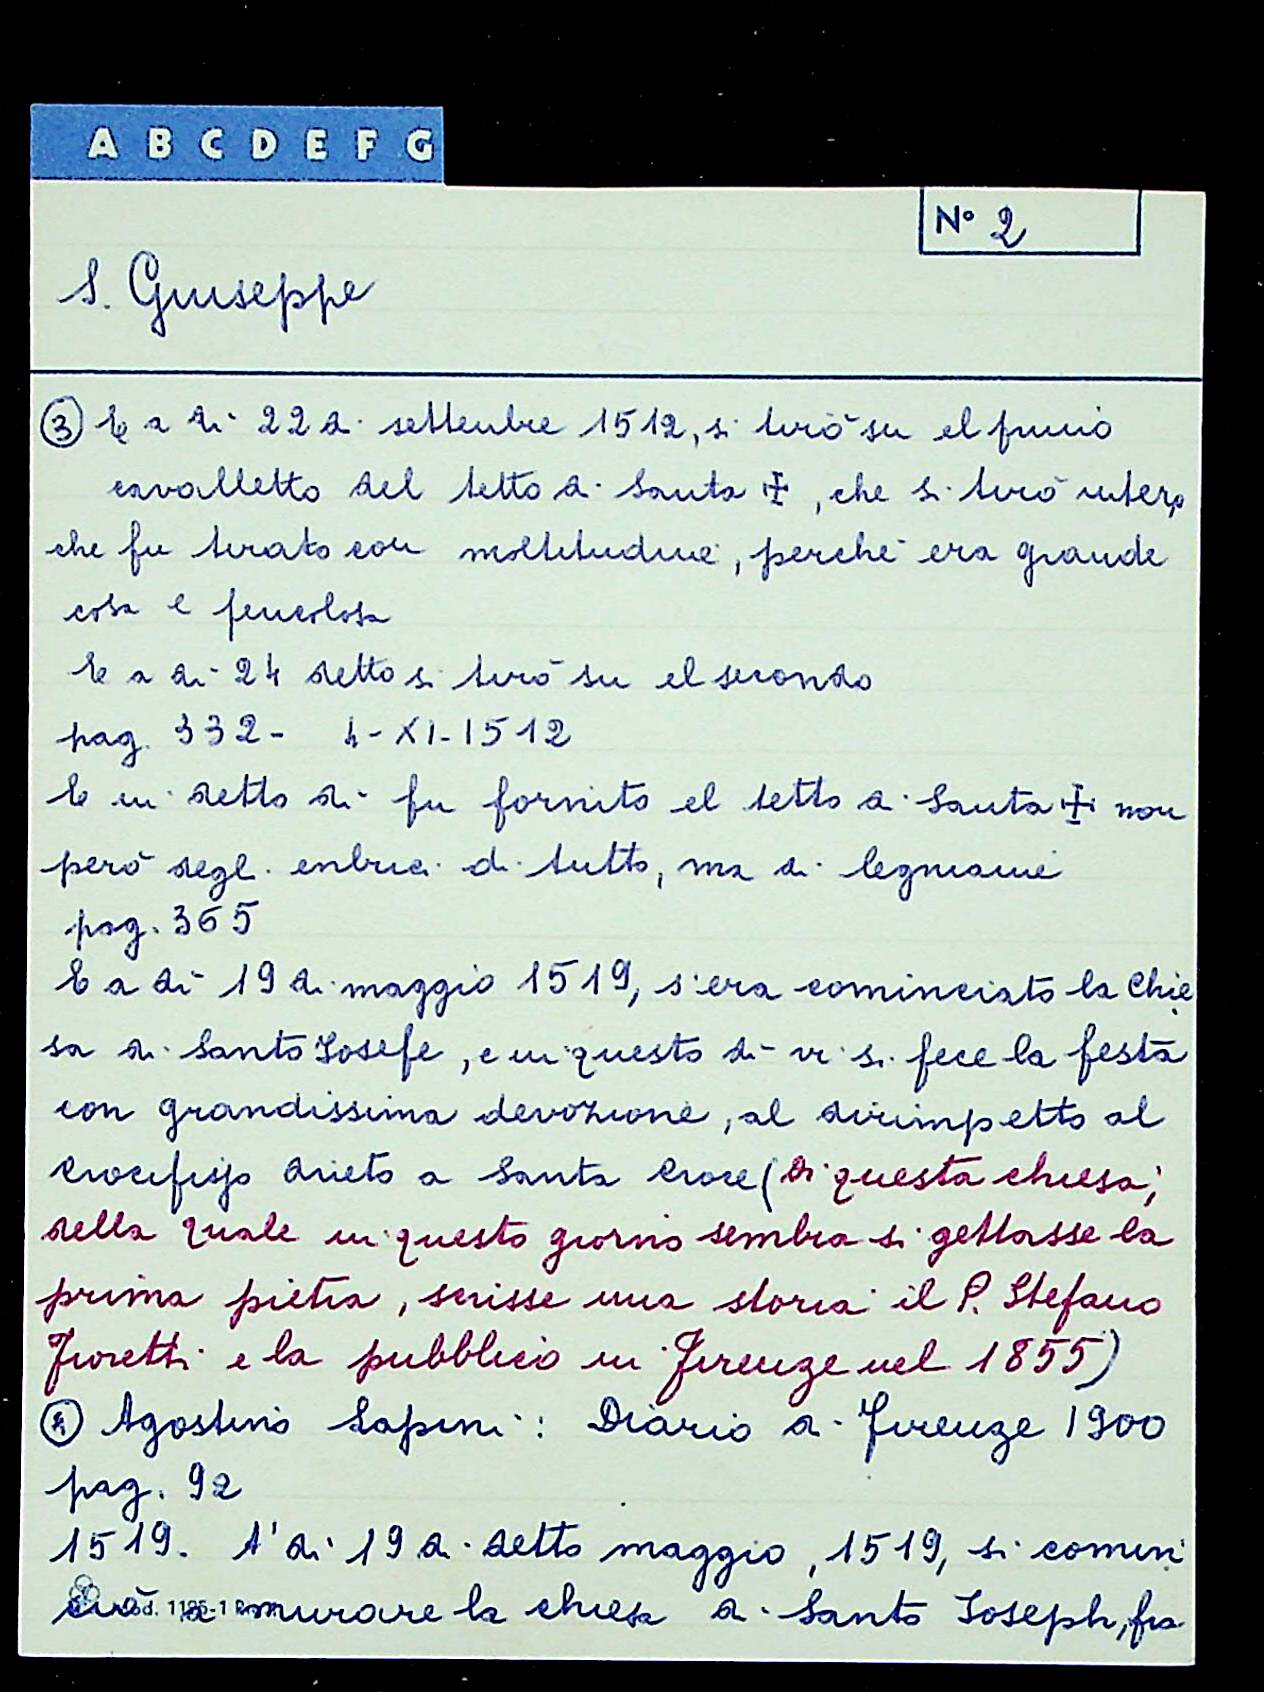 A B C D E F G
N° 2
S. Giuseppe
③ E a dì 22 di settembre 1512, si tirò su el primo
cavalletto del tetto di Santa ✠, che si tirò intero
che fu tirato con moltitudine, perché era grande
cosa e pericolosa
E a dì 24 detto si tirò su el secondo
pag. 332 - 4-XI-1512
E in detto dì fu fornito el tetto di Santa ✠ non
però degli enbrici di tutto, ma di legniami
pag. 365
E a dì 19 di maggio 1519, s'era cominciato la Chie
sa di Santo Iosefe, e in questo dì vi si fece la festa
con grandissima devozione, al dirimpetto al
Crocifisso drieto a Santa Croce (di questa chiesa,
della quale in questo giorno sembra si gettasse la
prima pietra, scrisse una storia il P. Stefano
Fioretti e la pubblicò in Firenze nel 1855)
④ Agostino Lapini: Diario di Firenze 1900
pag. 92
1519. A' di 19 di detto maggio, 1519, si comin
ciò a murare la chiesa di Santo Ioseph, fra